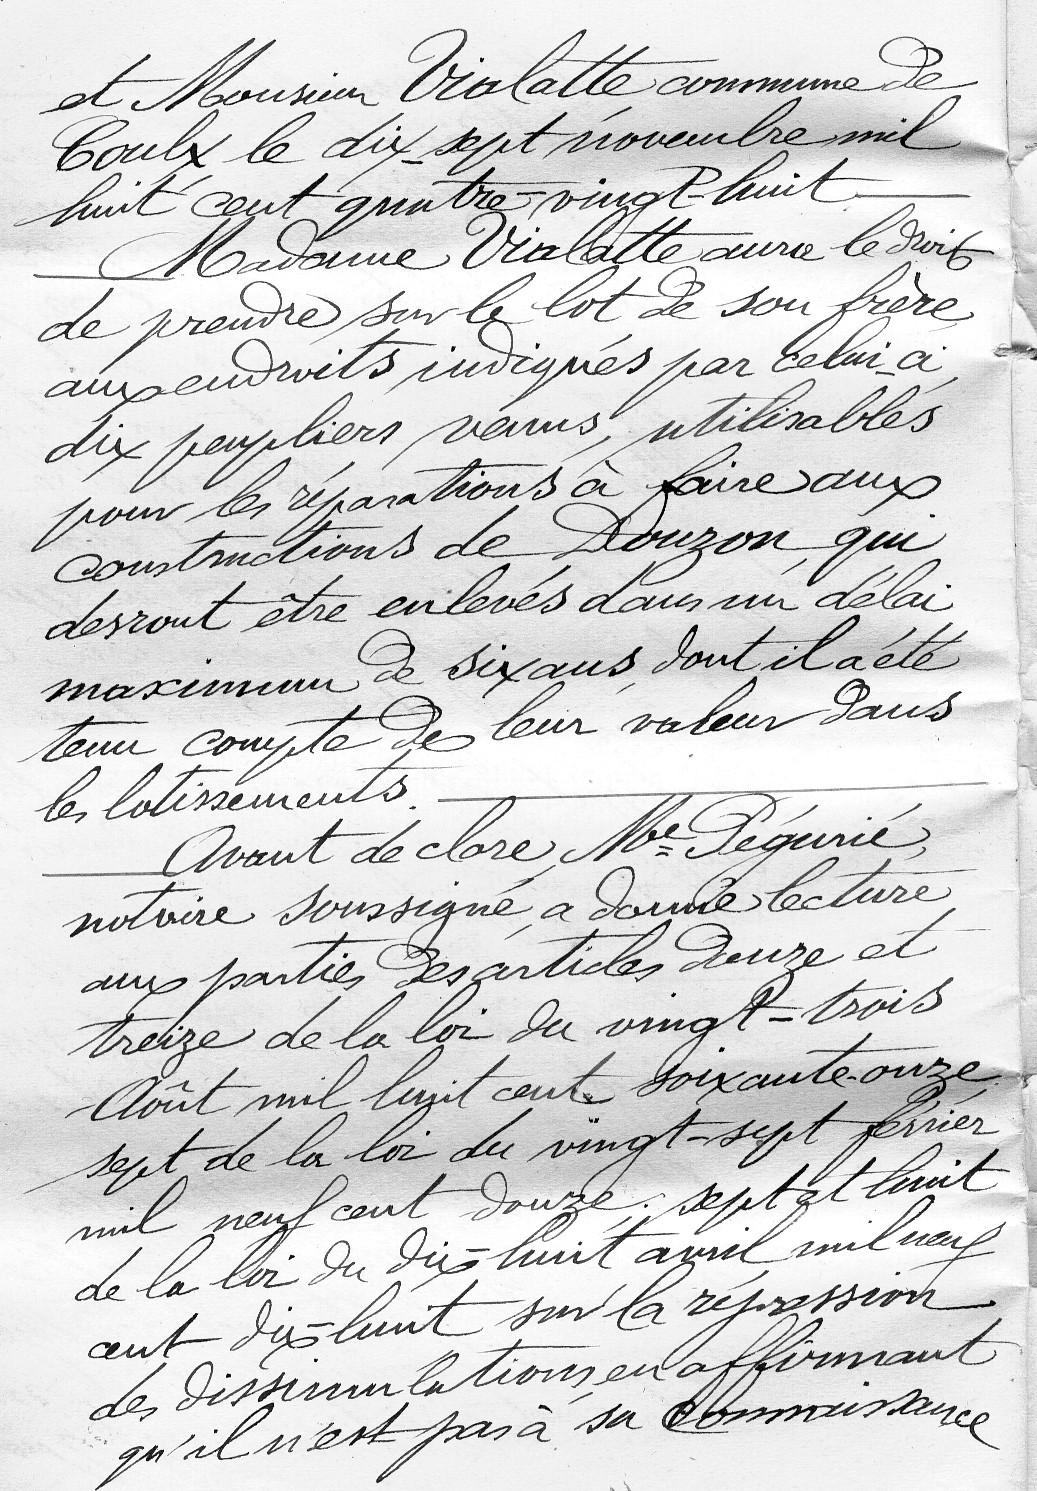 et Monsieur Vialatte commune de
Coulx le dix-sept novembre mil
huit cent quatre-vingt-huit
Madame Vialatte aura le droit
de prendre sur le lot de son frère,
aux endroits indiqués par celui-ci,
dix peupliers venus, utilisables
pour les réparations à faire aux
constructions de Douzon, qui
devront être enlevés dans un délai
maximum de six ans, dont il a été
tenu compte de leur valeur dans
les lotissements.
Avant de clore, Me Pégurié,
notaire soussigné, a donné lecture
aux parties des articles douze et
treize de la loi du vingt-trois
Août mil huit cent soixante-onze,
sept de la loi du vingt-sept février
mil neuf cent douze; sept et huit
de la loi du dix-huit avril mil neuf
cent dix-huit sur la répression
des dissimulations, en affirmant
qu'il n'est pas à sa connaissance